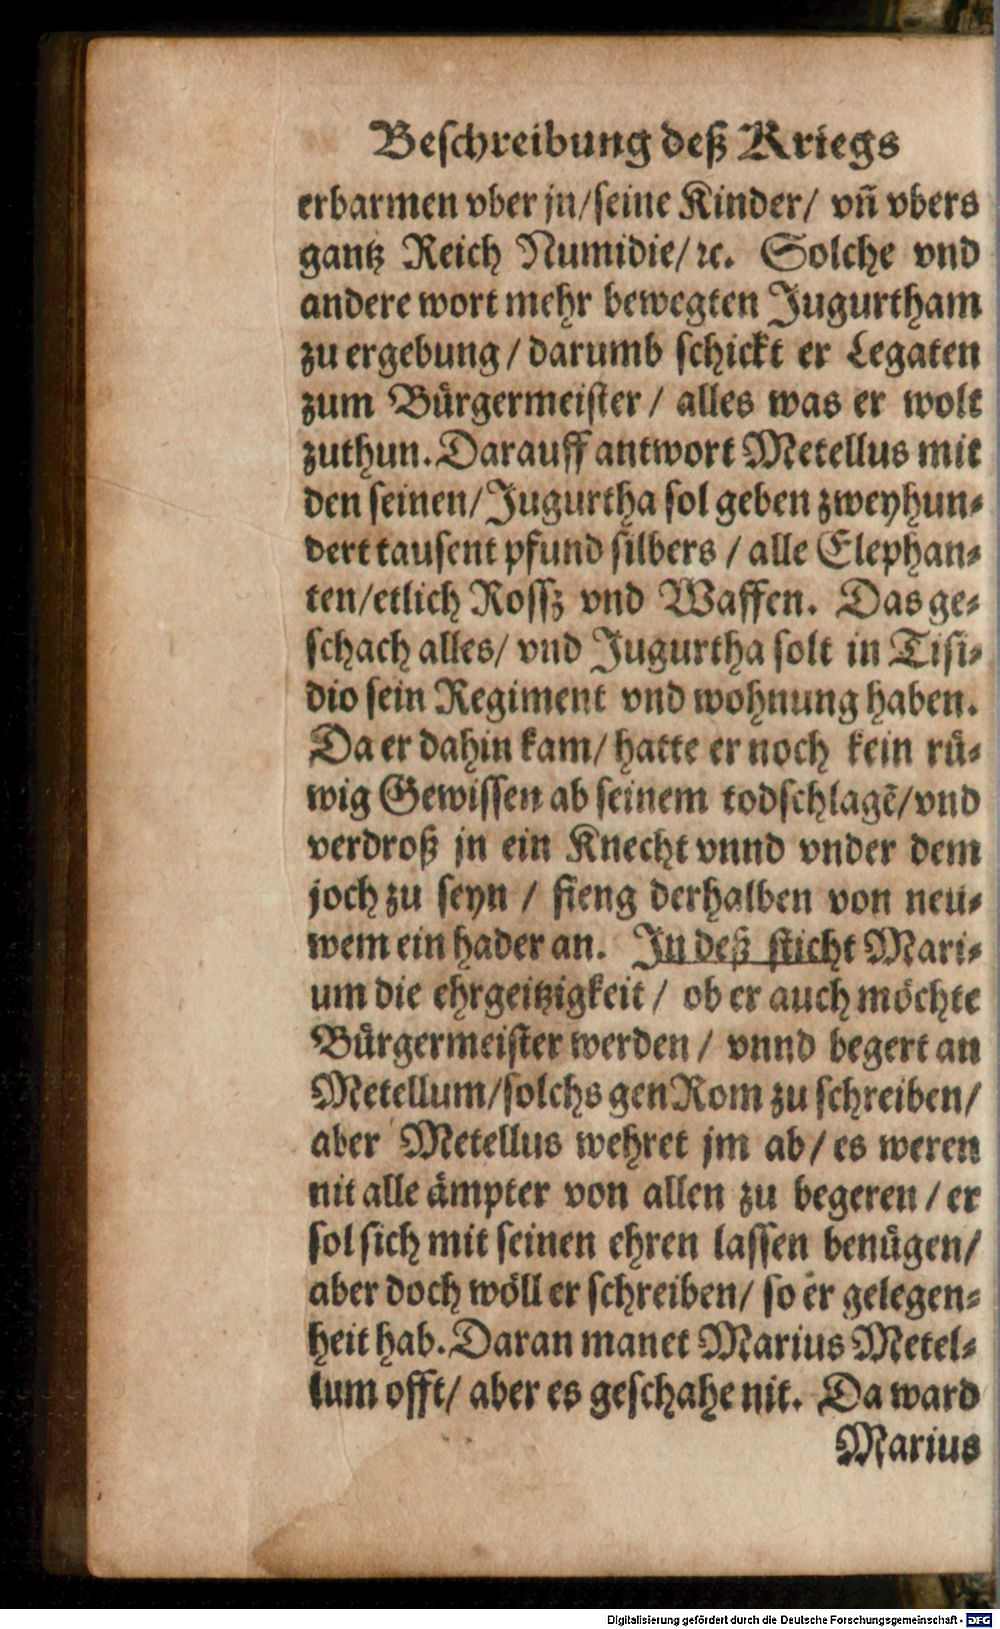 Beſchreibung deß Kriegs
erbarmen vber jn/ſeine Kinder/ vñ vbers
gantz Reich Numidie/ ꝛc. Solche vnd
andere wort mehr bewegten Jugurtham
zu ergebung / darumb ſchickt er Legaten
zum Bürgermeiſter / alles was er wolt
zuthun. Darauff antwort Metellus mit
den ſeinen/ Jugurtha ſol geben zweyhun⸗
dert tauſent pfund ſilbers / alle Elephan⸗
ten/etlich Roſſz vnd Waffen. Das ge⸗
ſchach alles/ vnd Jugurtha ſolt in Tiſi⸗
dio ſein Regiment vnd wohnung haben.
Da er dahin kam/ hatte er noch kein rü⸗
wig Gewiſſen ab ſeinem todſchlagẽ/vnd
verdroß jn ein Knecht vnnd vnder dem
joch zu ſeyn / fieng derhalben von neu⸗
wem ein hader an. In deß ſticht Mari⸗
um die ehrgeitzigkeit / ob er auch möchte
Bürgermeiſter werden / vnnd begert an
Metellum/ſolchs gen Rom zu ſchreiben/
aber Metellus wehret jm ab/ es weren
nit alle ämpter von allen zu begeren / er
ſol ſich mit ſeinen ehren laſſen benügen/
aber doch wöll er ſchreiben/ ſo er gelegen⸗
heit hab. Daran manet Marius Metel⸗
lum offt/ aber es geſchahe nit. Da ward
Marius
Digitalisierung gefördert durch die Deutsche Forschungsgemeinschaft - DFG